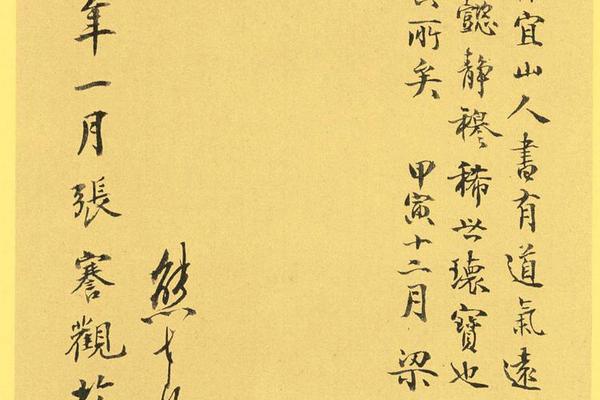 宜山人書有道氣遠
懿靜穆稀世瓌寶也
所矣 甲寅十二月 梁
熊
年一月張謇觀